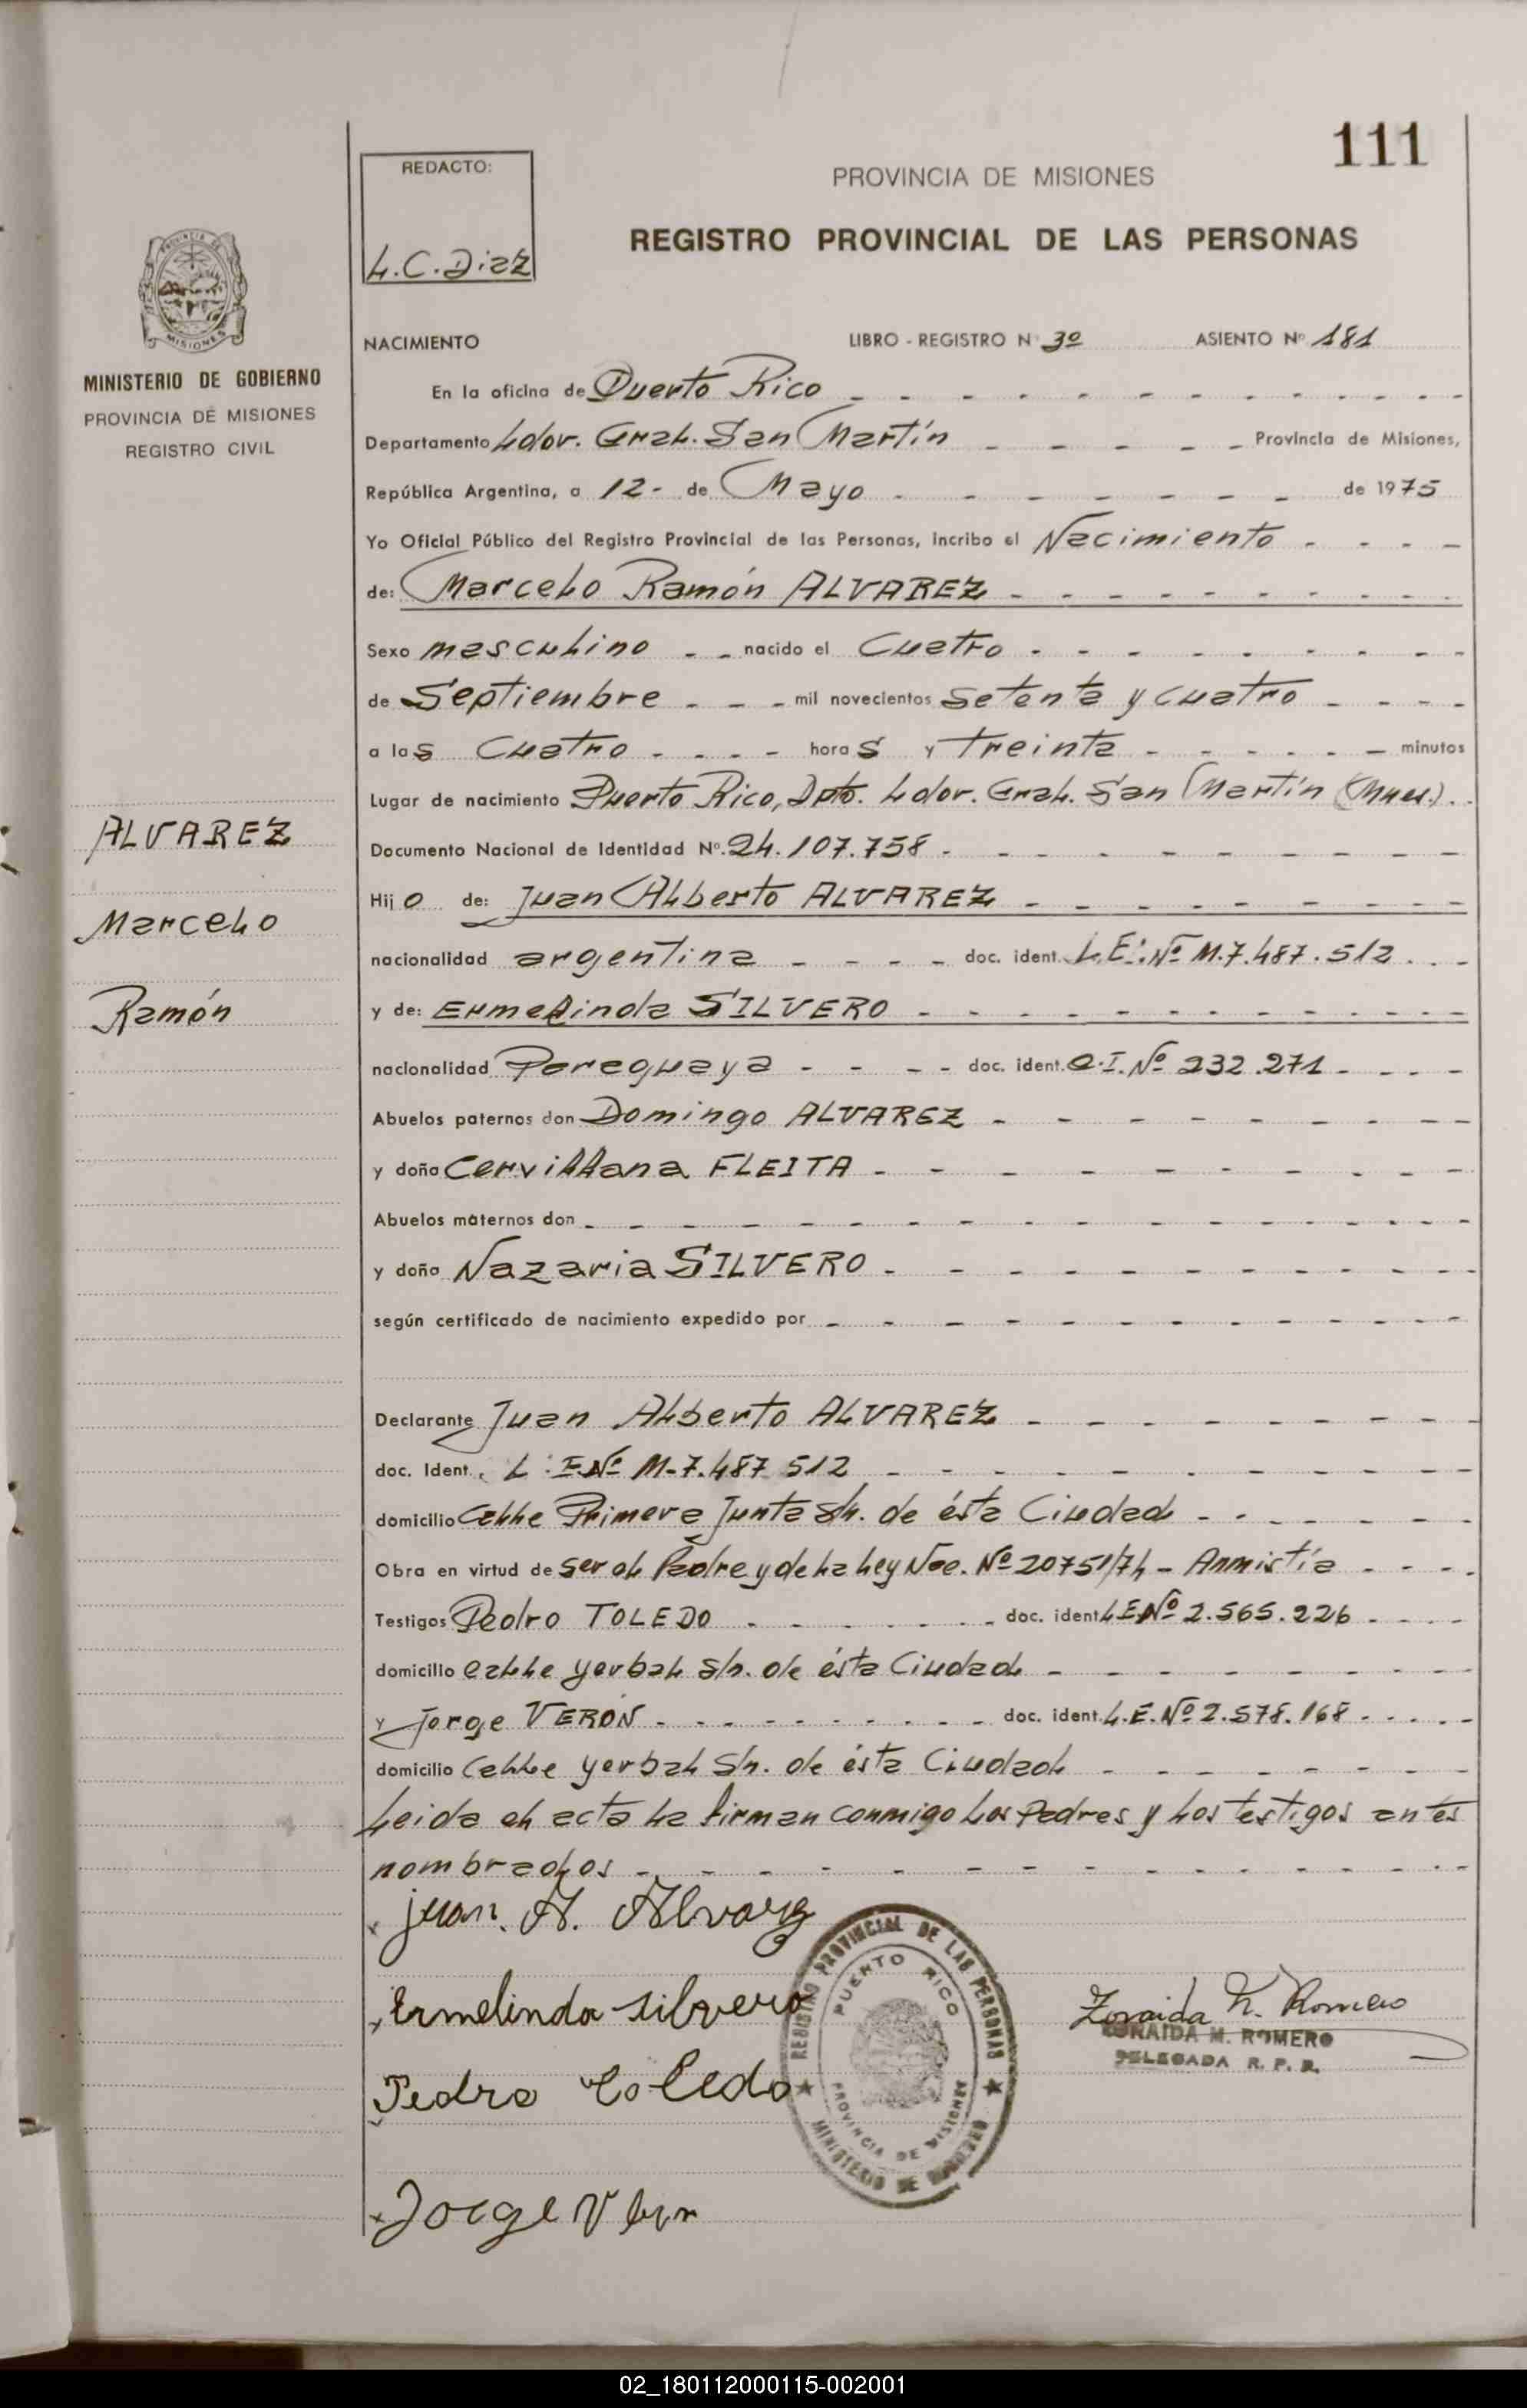 111
REDACTO:
L.C. Diaz
PROVINCIA DE MISIONES
REGISTRO PROVINCIAL DE LAS PERSONAS
MINISTERIO DE GOBIERNO
PROVINCIA DE MISIONES
REGISTRO CIVIL
ALVAREZ
Marcelo
Ramón
NACIMIENTO LIBRO - REGISTRO Nº 3º ASIENTO Nº 181
En la oficina de Puerto Rico
Departamento Ldor. Gral. San Martín Provincia de Misiones,
República Argentina, a 12- de Mayo de 1975
Yo Oficial Público del Registro Provincial de las Personas, incribo el Nacimiento
de: Marcelo Ramón ALVAREZ
Sexo masculino nacido el Cuatro
de Septiembre mil novecientos setenta y cuatro
a las Cuatro horas y treinta minutos
Lugar de nacimiento Puerto Rico, Dpto. Ldor. Gral. San Martín (Mnes.).
Documento Nacional de Identidad Nº. 24.107.758
Hijo de: Juan Alberto ALVAREZ
nacionalidad argentina doc. ident. L.E. Nº M.7.487.512
y de: Ermelinda SILVERO
nacionalidad Paraguaya doc. ident. C.I. Nº 232.271
Abuelos paternos don Domingo ALVAREZ
y doña Cervillana FLEITA
Abuelos maternos don
y doña Nazaria SILVERO
según certificado de nacimiento expedido por
Declarante Juan Alberto ALVAREZ
doc. Ident. L.E. Nº M-7.487.512
domicilio Calle Primera Junta s/n. de ésta Ciudad
Obra en virtud de ser el Padre y de la ley Nac. Nº 20751/74 - Anmistía
Testigos Pedro TOLEDO doc. ident. L.E. Nº 2.565.226
domicilio calle yerbal s/n. de ésta Ciudad
y Jorge VERÓN doc. ident. L.E. Nº 2.578.168
domicilio Calle yerbal s/n. de ésta Ciudad
Leida el acta la firman conmigo los Padres y los testigos antes
nombrados
Juan. A. Alvarez
Ermelinda silvero
Pedro Toledo
Jorge
REGISTRO PROVINCIAL DE LAS PERSONAS
PUERTO RICO
PROVINCIA DE MISIONES
MINISTERIO DE GOBIERNO
Zoraida M. Romero
ZORAIDA M. ROMERO
DELEGADA R. P. P.
02_180112000115-002001